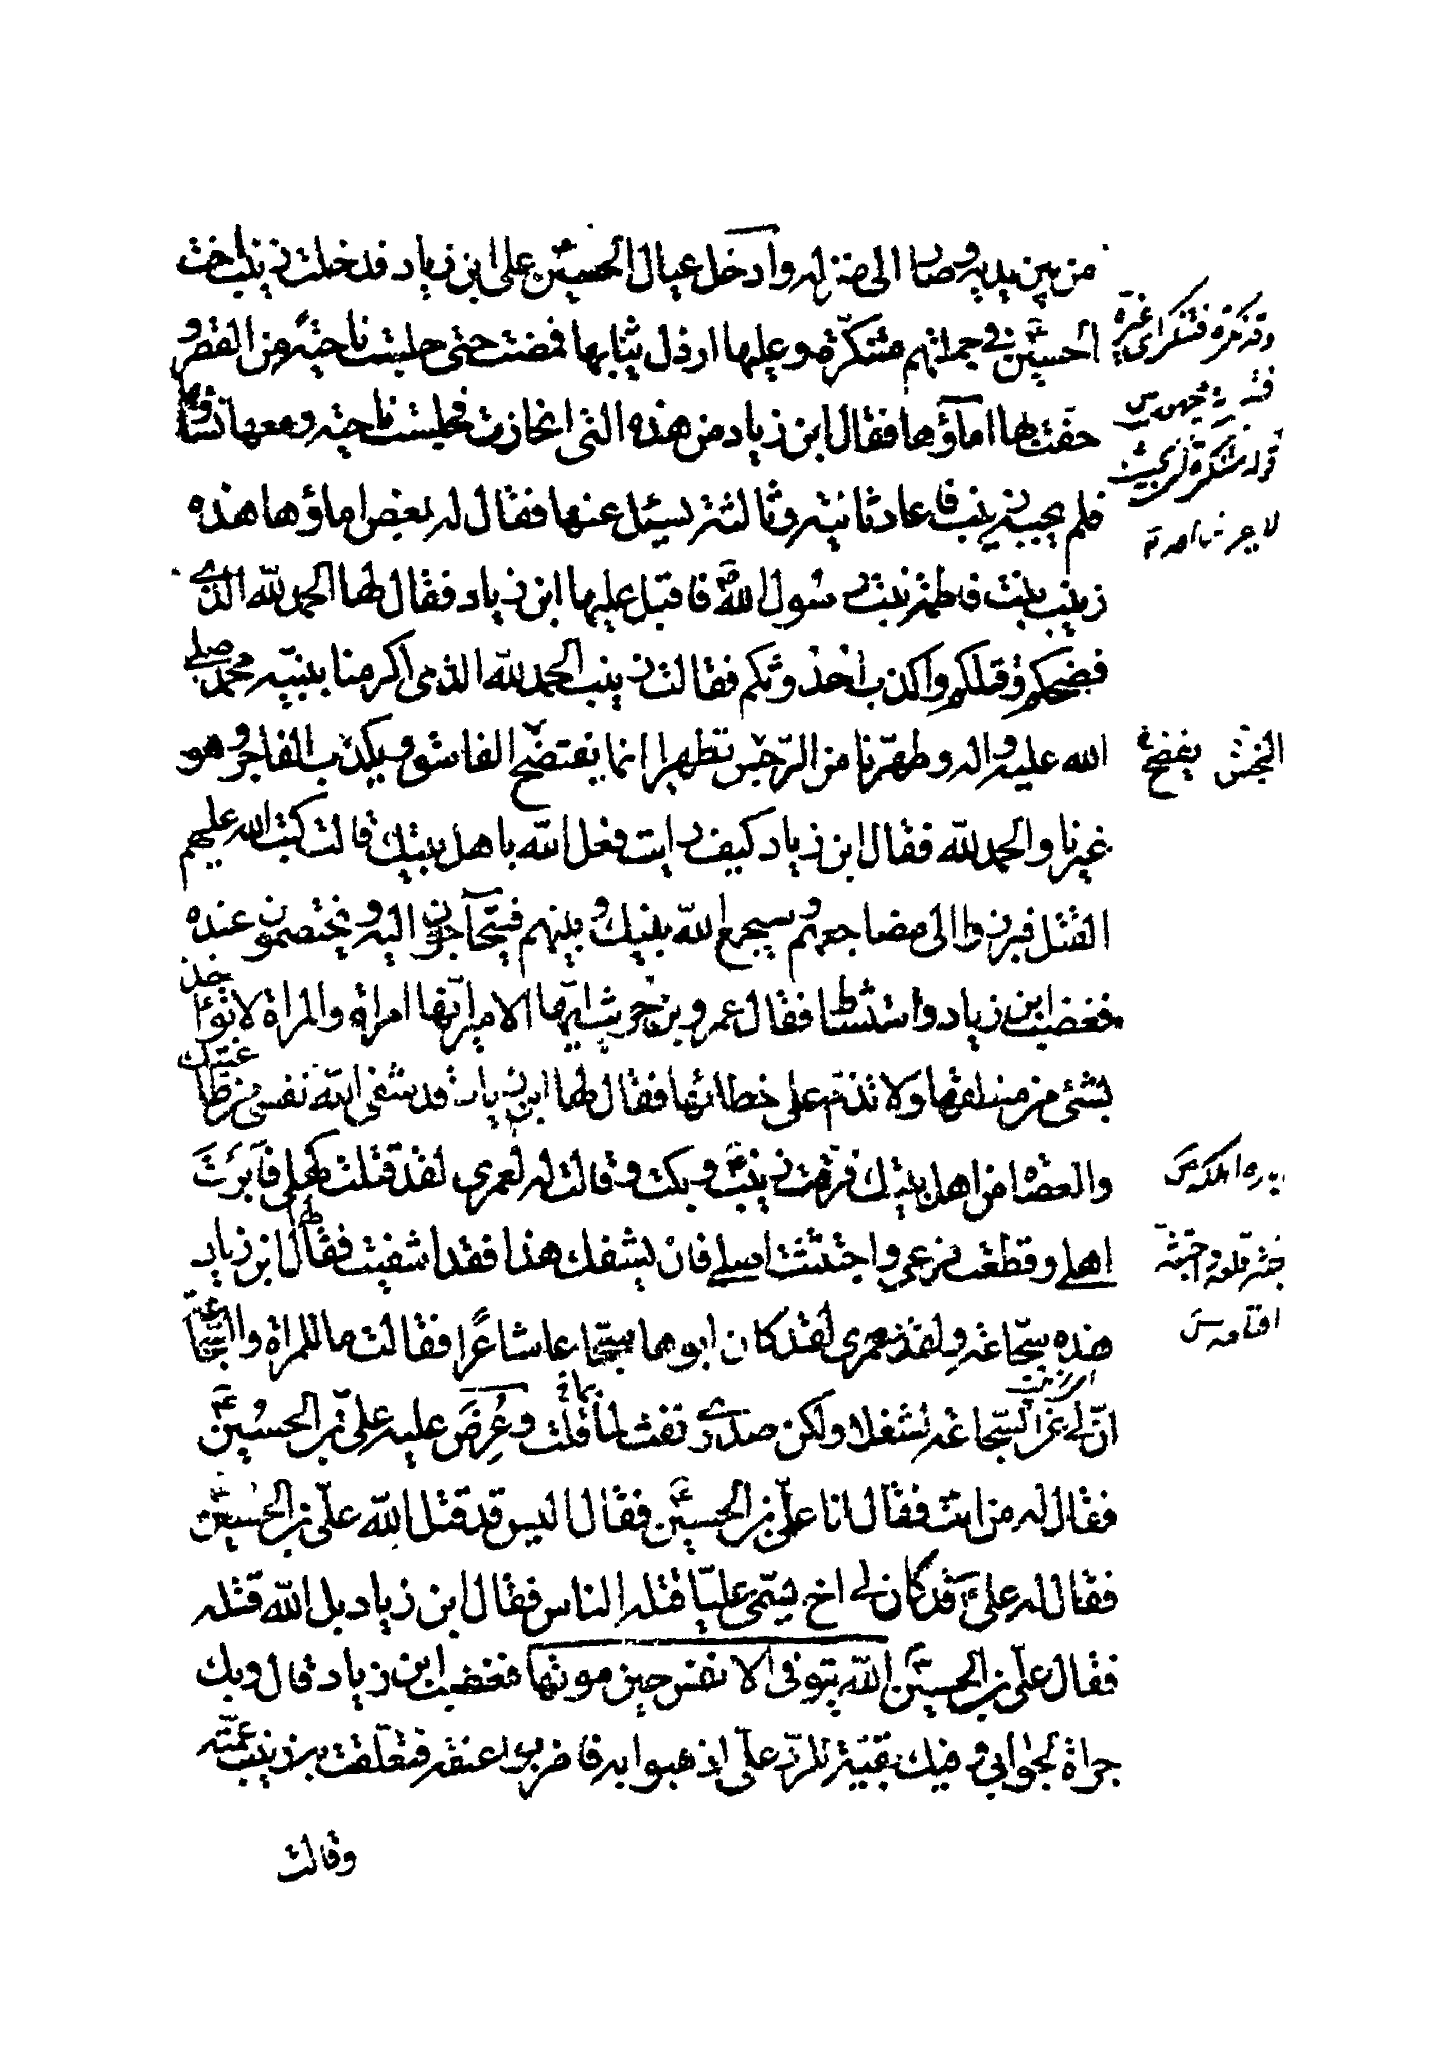 من بين يديه وصار الى منزله وادخل عيال الحسين على ابن زياد فدخلت زينب اخت
الحسين ع في جملتهم متنكّرة وعليها ارذل ثيابها فمضت حتى جلست ناحية من القصر و
حفت بها اماؤها فقال ابن زياد من هذه التى انحازت فجلست ناحية ومعها نساؤها
فلم يجبه زينب فاعاد ثانية وثالثة يسئل عنها فقال له بعض اماؤها هذه
زينب بنت فاطمة بنت رسول الله ص فاقبل عليها ابن زياد فقال لها الحمد لله الذي
فضحكم وقتلكم واكذب احدوثكم فقالت زينب الحمد لله الذى اكرمنا بنبيّه محمد صلى
الله عليه واله وطهّرنا من الرّجس تطهيرا انما يفتضح الفاسق ويكذب الفاجر وهو
غيرنا والحمد لله فقال ابن زياد كيف رايت فعل الله باهل بيتك قالت كتب الله عليهم
القتل فبرزوا الى مضاجعهم وسيجمع الله بينك وبينهم فتحآجون اليه ويختصمون عنده
فغضب ابن زياد واستشاط فقال عمرو بن حريث ايّها الامير انّها امراة والمراة لا تؤاخذ
بشئ من منطقها ولا تذمّ على خطائها فقال لها ابن زياد قد شفى الله نفسى من طاغيتك
والعصاة من اهل بيتك فرقت زينب ع وبكت وقالت له لعمري لقد قتلت كهلى وآبرت
اهلي وقطعت فرعى واجتثثت اصلي فان يشفك هذا فقد اشفيت فقال لها ابن زياد
هذه سجّاعة ولقد لعمرى لقد كان ابوها سجّاعا شاعرًا فقالت ما للمراة والسّجاعة
انّ لي عن السّجاعة لشغلا ولكن صدرى نفث بما قلت وعُرِضَ عليه علىّ بن الحسين ع
فقال له من انت فقال انا علىّ بن الحسين ع فقال اليس قد قتل الله علىّ بن الحسين
فقال له علىّ ع قد كان لي اخ يسمّى عليّا قتله الناس فقال ابن زياد بل الله قتله
فقال علىّ بن الحسين ع الله يتوفى الانفس حين موتها فغضب ابن زياد قال وبك
جراة لجوابى وفيك بقيّة للرّد علىّ اذهبوا به فاضربوا عنقه فتعلّقت به زينب عمّته
وقالت